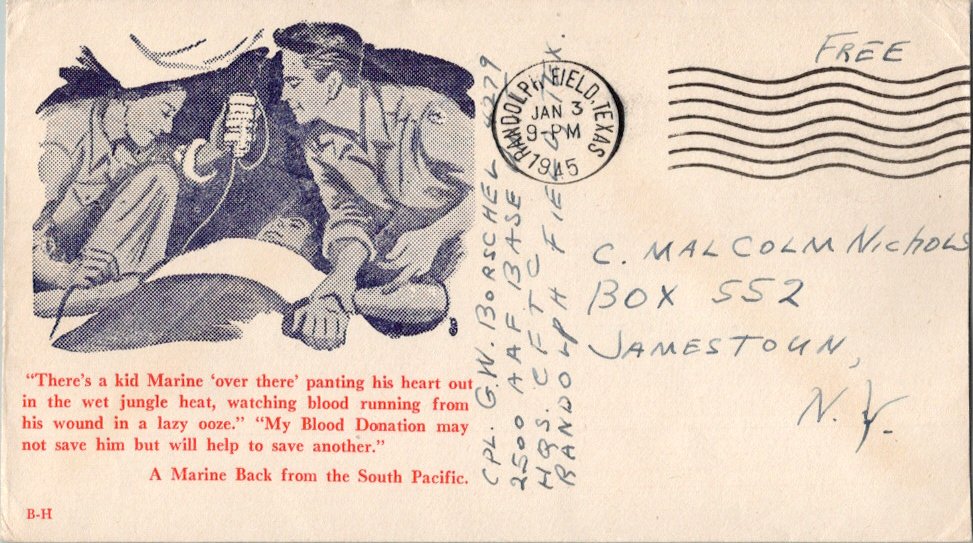 FREE
RANDOLPH FIELD, TEXAS
JAN 3
9-PM
1945
CPL. G.W. BORSCHEL 4279
2500 AAF BASE UNIT
HQS. CFTC
RANDOLPH FIELD, TEX.
C. MALCOLM Nichols
BOX 552
JAMESTOWN,
N.Y.
“There's a kid Marine ‘over there’ panting his heart out
in the wet jungle heat, watching blood running from
his wound in a lazy ooze.” “My Blood Donation may
not save him but will help to save another.”
A Marine Back from the South Pacific.
B-H